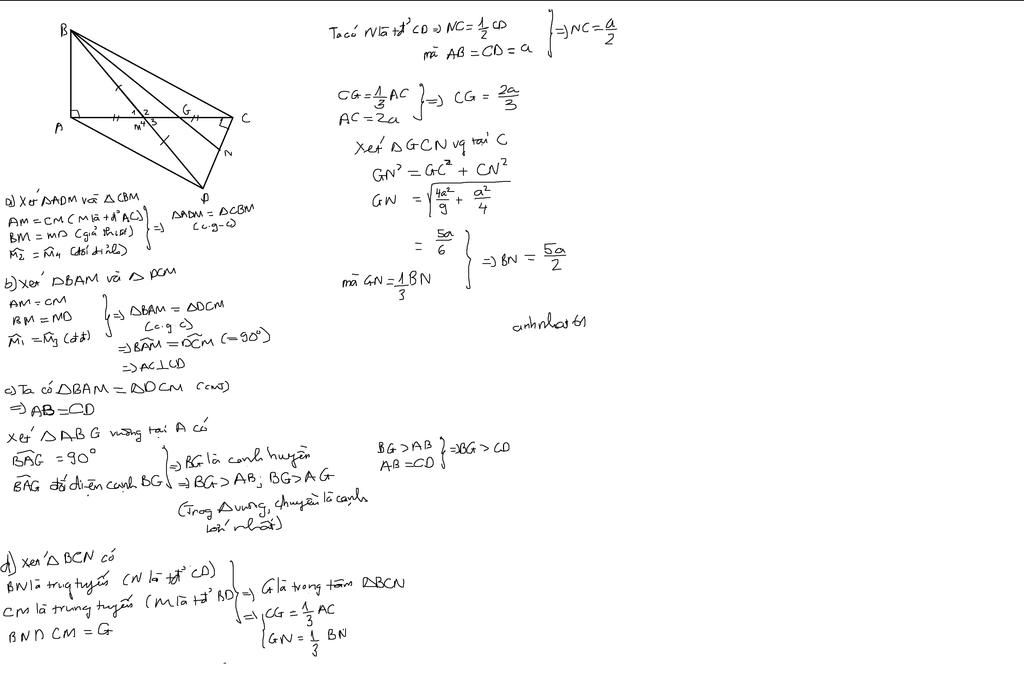 B
A
M
1 2
4 3
G
C
N
D
a) Xét ΔADM và ΔCBM
AM = CM (M là tđ² AC)
BM = MD (giả thiết)
M̂2 = M̂4 (đối đỉnh)
=> ΔADM = ΔCBM
(c.g-c)
b) Xét ΔBAM và ΔDCM
AM = CM
BM = MD
M̂1 = M̂3 (đđ)
=> ΔBAM = ΔDCM
(c.g c)
=> BAM = DCM (= 90°)
=> AC ⊥ CD
c) Ta có ΔBAM = ΔDCM (cmt)
=> AB = CD
Xét ΔABG vuông tại A có
BAG = 90°
BAG đối diện cạnh BG
=> BG là cạnh huyền
=> BG > AB; BG > AG
(Trog Δvuong, chuyền là cạnh
lớn nhất)
BG > AB
AB = CD
=> BG > CD
d) Xét ΔBCN có
BN là trug tuyến (N là tđ² CD)
CM là trung tuyến (M là tđ² BD)
BN ∩ CM = G
=> G là trong tâm ΔBCN
=> CG = 1/3 AC
GN = 1/3 BN
Ta có N là tđ² CD => NC = 1/2 CD
mà AB = CD = a
=> NC = a/2
CG = 1/3 AC
AC = 2a
=> CG = 2a/3
Xét ΔGCN vg tại C
GN² = GC² + CN²
GN = √(4a²/9 + a²/4)
= 5a/6
mà GN = 1/3 BN
=> BN = 5a/2